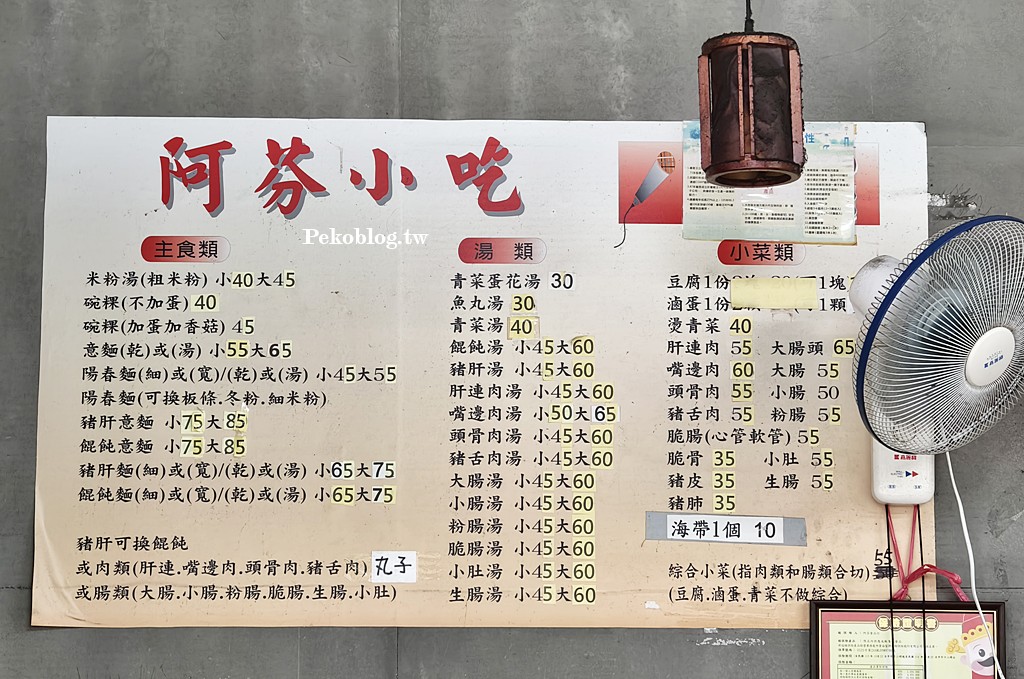 阿芬小吃
Pekoblog.tw
主食類
米粉湯(粗米粉) 小40大45
碗粿(不加蛋) 40
碗粿(加蛋加香菇) 45
意麵(乾)或(湯) 小55大65
陽春麵(細)或(寬)/(乾)或(湯) 小45大55
陽春麵(可換板條.冬粉.細米粉)
豬肝意麵 小75大85
餛飩意麵 小75大85
豬肝麵(細)或(寬)/(乾)或(湯) 小65大75
餛飩麵(細)或(寬)/(乾)或(湯) 小65大75
豬肝可換餛飩
或肉類(肝連.嘴邊肉.頭骨肉.豬舌肉) 丸子
或腸類(大腸.小腸.粉腸.脆腸.生腸.小肚)
湯 類
青菜蛋花湯 30
魚丸湯 30
青菜湯 40
餛飩湯 小45大60
豬肝湯 小45大60
肝連肉湯 小45大60
嘴邊肉湯 小50大65
頭骨肉湯 小45大60
豬舌肉湯 小45大60
大腸湯 小45大60
小腸湯 小45大60
粉腸湯 小45大60
脆腸湯 小45大60
小肚湯 小45大60
生腸湯 小45大60
小菜類
豆腐1份 1塊
滷蛋1份 1顆
燙青菜 40
肝連肉 55 大腸頭 65
嘴邊肉 60 大腸 55
頭骨肉 55 小腸 50
豬舌肉 55 粉腸 55
脆腸(心管軟管) 55
脆骨 35 小肚 55
豬皮 35 生腸 55
豬肺 35
海帶1個 10
綜合小菜(指肉類和腸類合切) 55
(豆腐.滷蛋.青菜不做綜合)